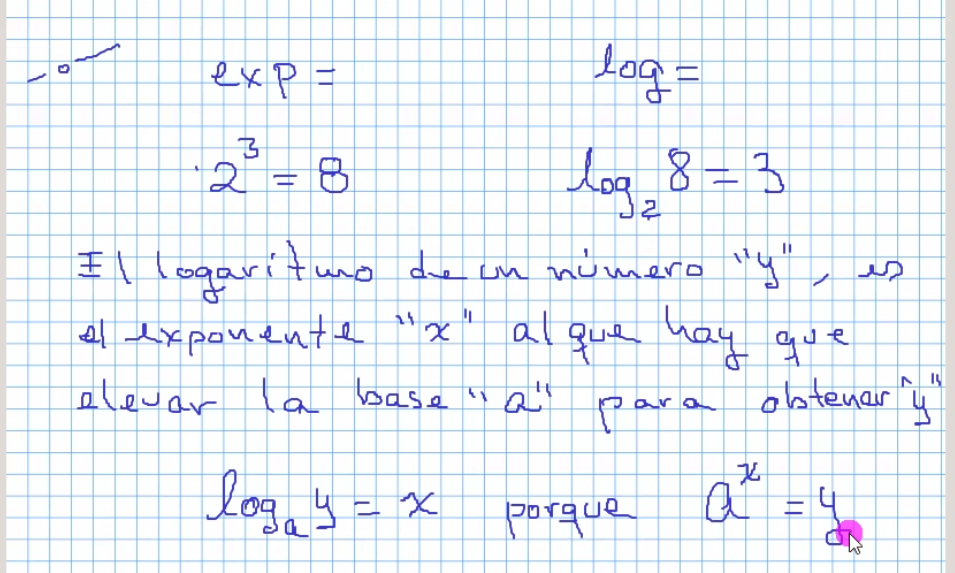 exp = log =
2³ = 8 log₂ 8 = 3
El logaritmo de un número "y", es
el exponente "x" al que hay que
elevar la base "a" para obtener "y"
logₐ y = x porque aˣ = y